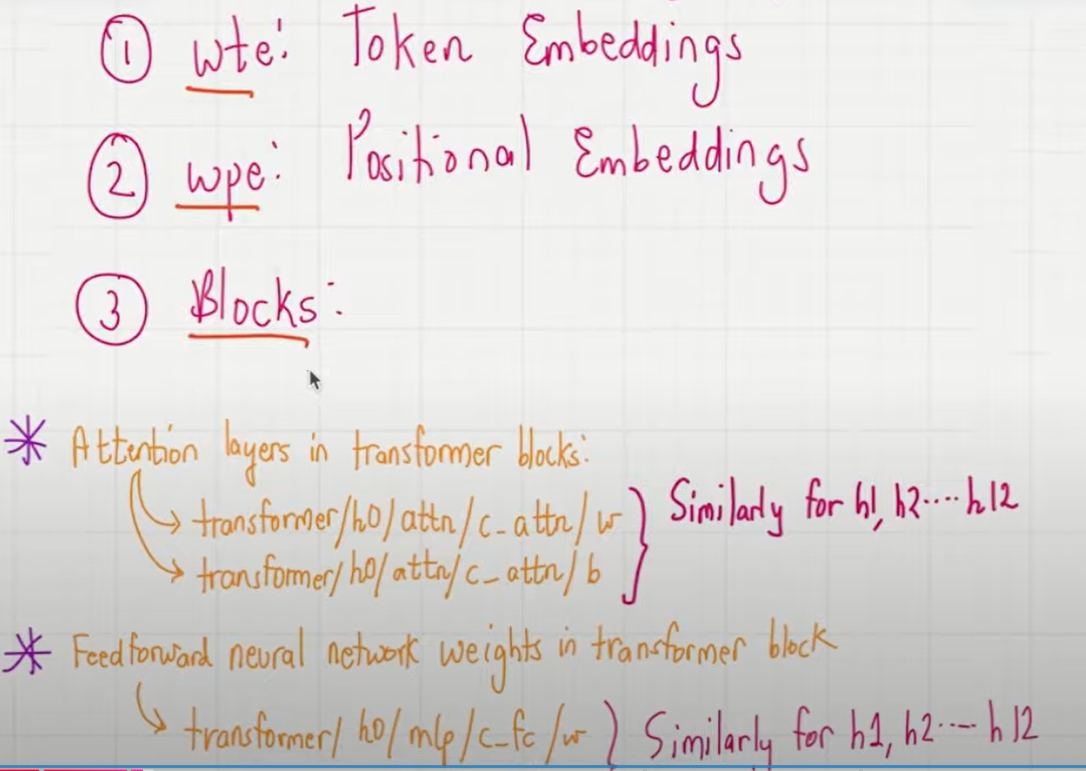 ① wte: Token Embeddings
② wpe: Positional Embeddings
③ Blocks:
* Attention layers in transformer blocks:
→ transformer/h0/attn/c_attn/w } Similarly for h1, h2.... h12
→ transformer/h0/attn/c_attn/b
* Feedforward neural network weights in transformer block
→ transformer/h0/mlp/c_fc/w } Similarly for h1, h2.... h12